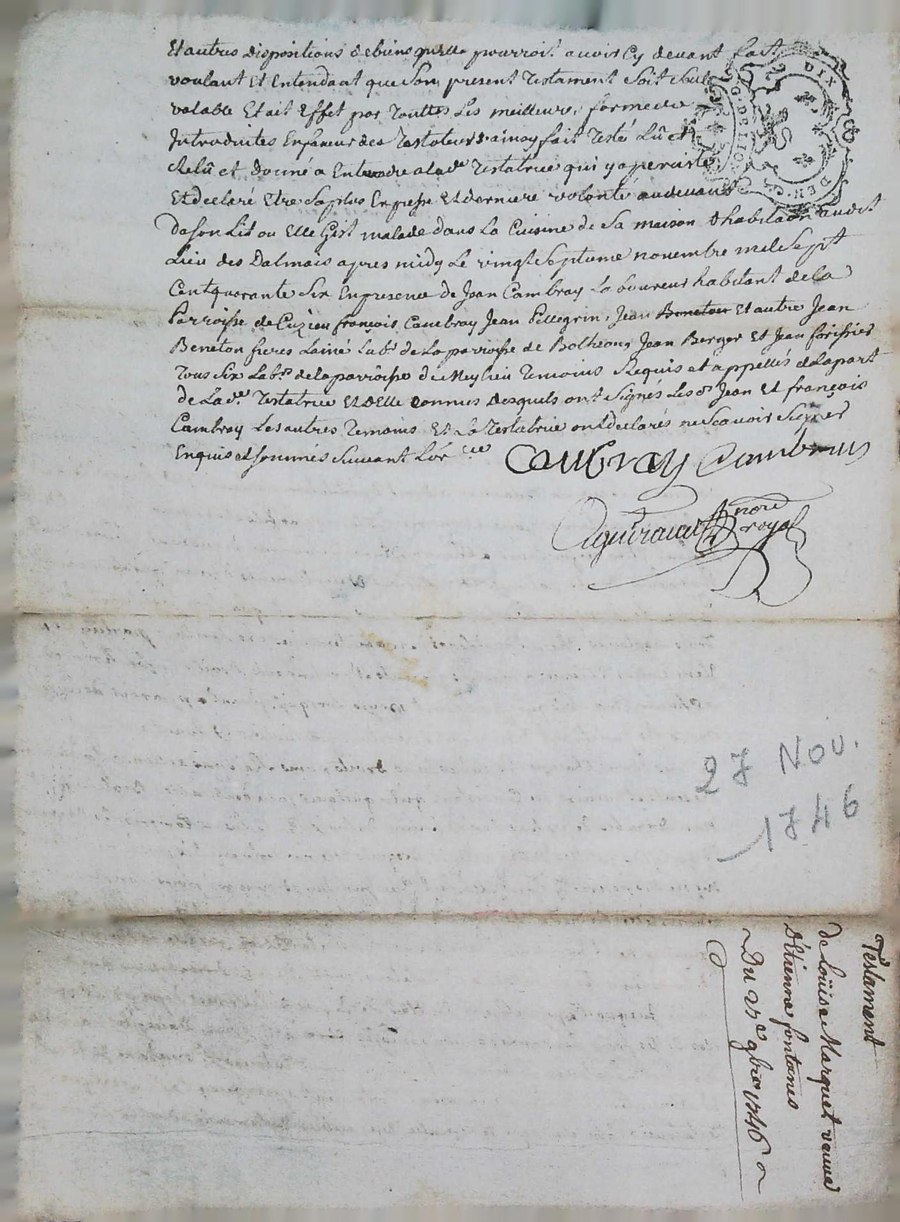 Et autres dispositions de biens quelle pourroit avoir Cy devant fait
voulant Et Entendant que Son present Testament Soit
valable Et ait Effet par Touttes Les meilleures formes
Introduites En faveur des Testateurs ainsy fait Testé Lû et
Relû et donné a Entendre a lad.e Testatrice qui y a perciste
Et declaré Etre Sa plus Expresse Et derniere volonté au devant
De Son Lit ou Elle Gist malade dans La Cuisine de Sa maison d'habitaon audit
Lieu des Dalmais apres midy Le vingt Septieme novembre mil Sept
Cent quarante Six En presence de Jean Cambray Laboureur habitant de la
Parroisse de Cuzieu françois Cambray Jean Pellegrin, Jean Beneton Et autre Jean
Beneton freres Lainé Lab.r de La parroisse de Jean Berger Et Jean
Tous Six Lab.rs de la parroisse de Meylieu Temoins Requis et appellés de La part
de La d.e Testatrice Et d'Elle connus desquels ont Signés Les d. Jean Et françois
Cambray Les autres Temoins Et La Testatrice ont declarés ne Scavoir Signer
Enquis et Sommes Suivant L'or.ce Caubray Cambray
nore
royal
G. DE LION
DIX
DEN.
27 NOV.
1746
Testament
de Loüise Marquet veuve
d'étienne fontanes
Du 27e 9bre 1746